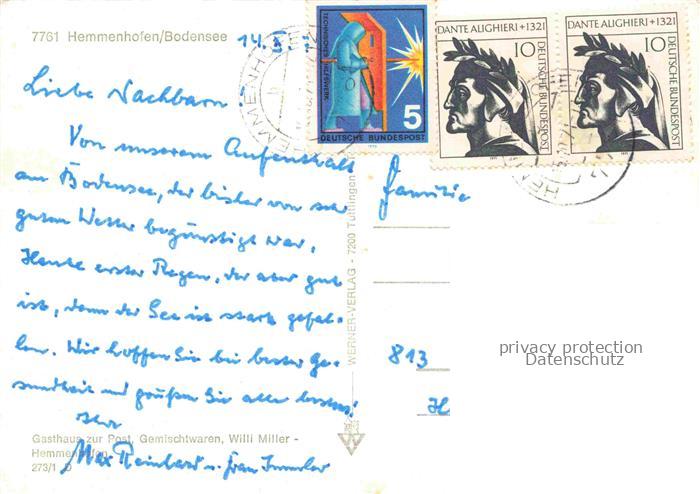 7761 Hemmenhofen/Bodensee
14.
TECHNISCHES HILFSWERK
5
DEUTSCHE BUNDESPOST
DANTE ALIGHIERI +1321
10
DEUTSCHE BUNDESPOST
DANTE ALIGHIERI +1321
10
DEUTSCHE BUNDESPOST
Liebe Nachbarn!
Von unserem Aufenthalt
am Bodensee, der bisher von sehr
gutem Wetter begünstigt war,
Heute erster Regen, der aber gut
ist, denn der See ist stark gefal-
len. Wir hoffen Sie bei bester Ge-
sundheit und grüßen Sie alle bestens!
Ihre
Max Reinhard u. Frau
Familie
813
WERNER-VERLAG - 7200 Tuttlingen
privacy protection
Datenschutz
Gasthaus zur Post, Gemischtwaren, Willi Miller -
Hemmenhofen
273/1 D